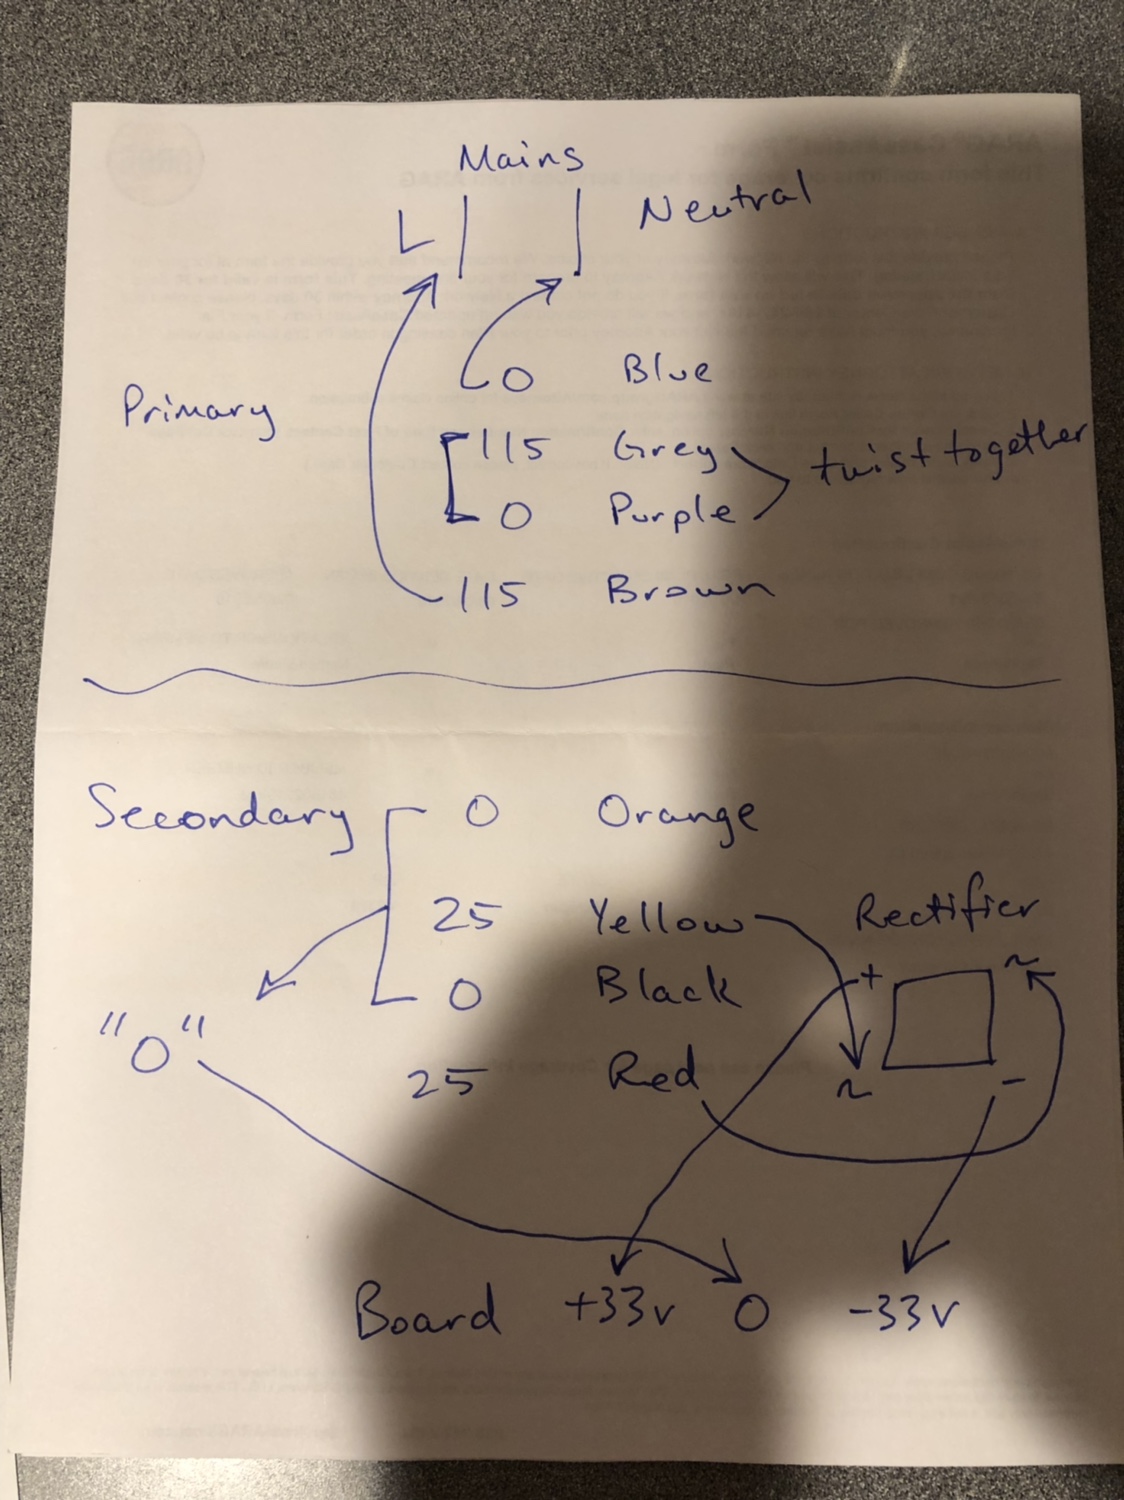 Mains
L Neutral
0 Blue
Primary
115 Grey
twist together
0 Purple
115 Brown
Secondary 0 Orange
25 Yellow Rectifier
+ ~
0 Black
"0"
25 Red ~ -
Board +33v 0 -33v